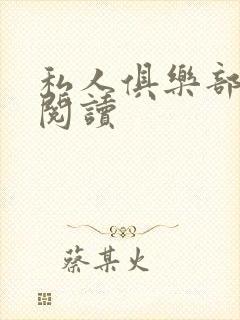 私人俱樂部
閱讀
蔡某火